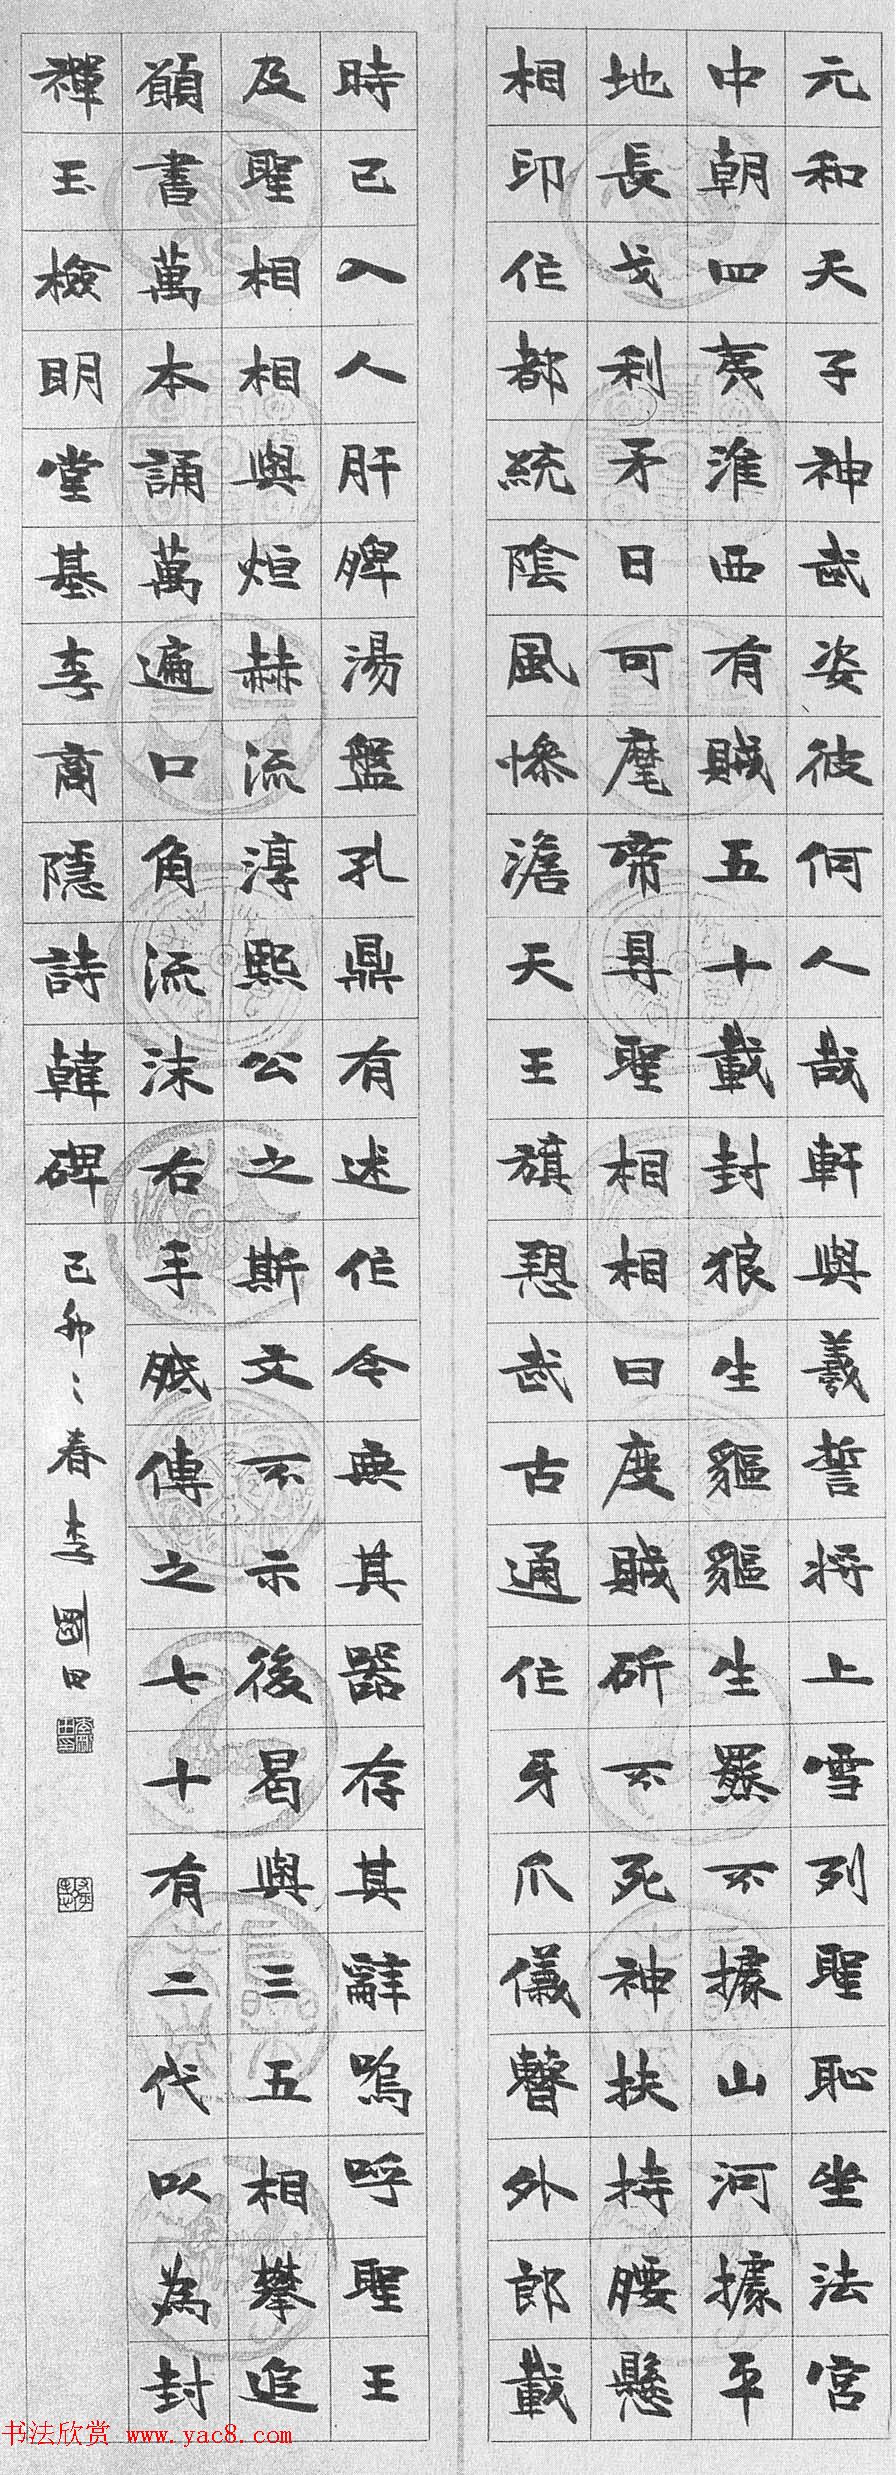 元和天子神武姿彼何人哉軒與羲誓將上雪列聖恥坐法宮
中朝四夷淮西有賊五十載封狼生貙貙生羆不據山河據平
地長戈利矛日可麾帝㝵聖相相曰度賊斫不死神扶持腰懸
相印作都統陰風慘澹天王旗愬武古通作牙爪儀曹外郎載
時已入人肝脾湯盤孔鼎有述作今無其器存其辭嗚呼聖王
及聖相相與烜赫流淳熙公之斯文不示後曷與三五相攀追
願書萬本誦萬遍口角流沫右手胝傳之七十有二代以為封
禪玉檢明堂基李商隱詩韓碑
己卯之春李國田
书法欣赏 www.yac8.com